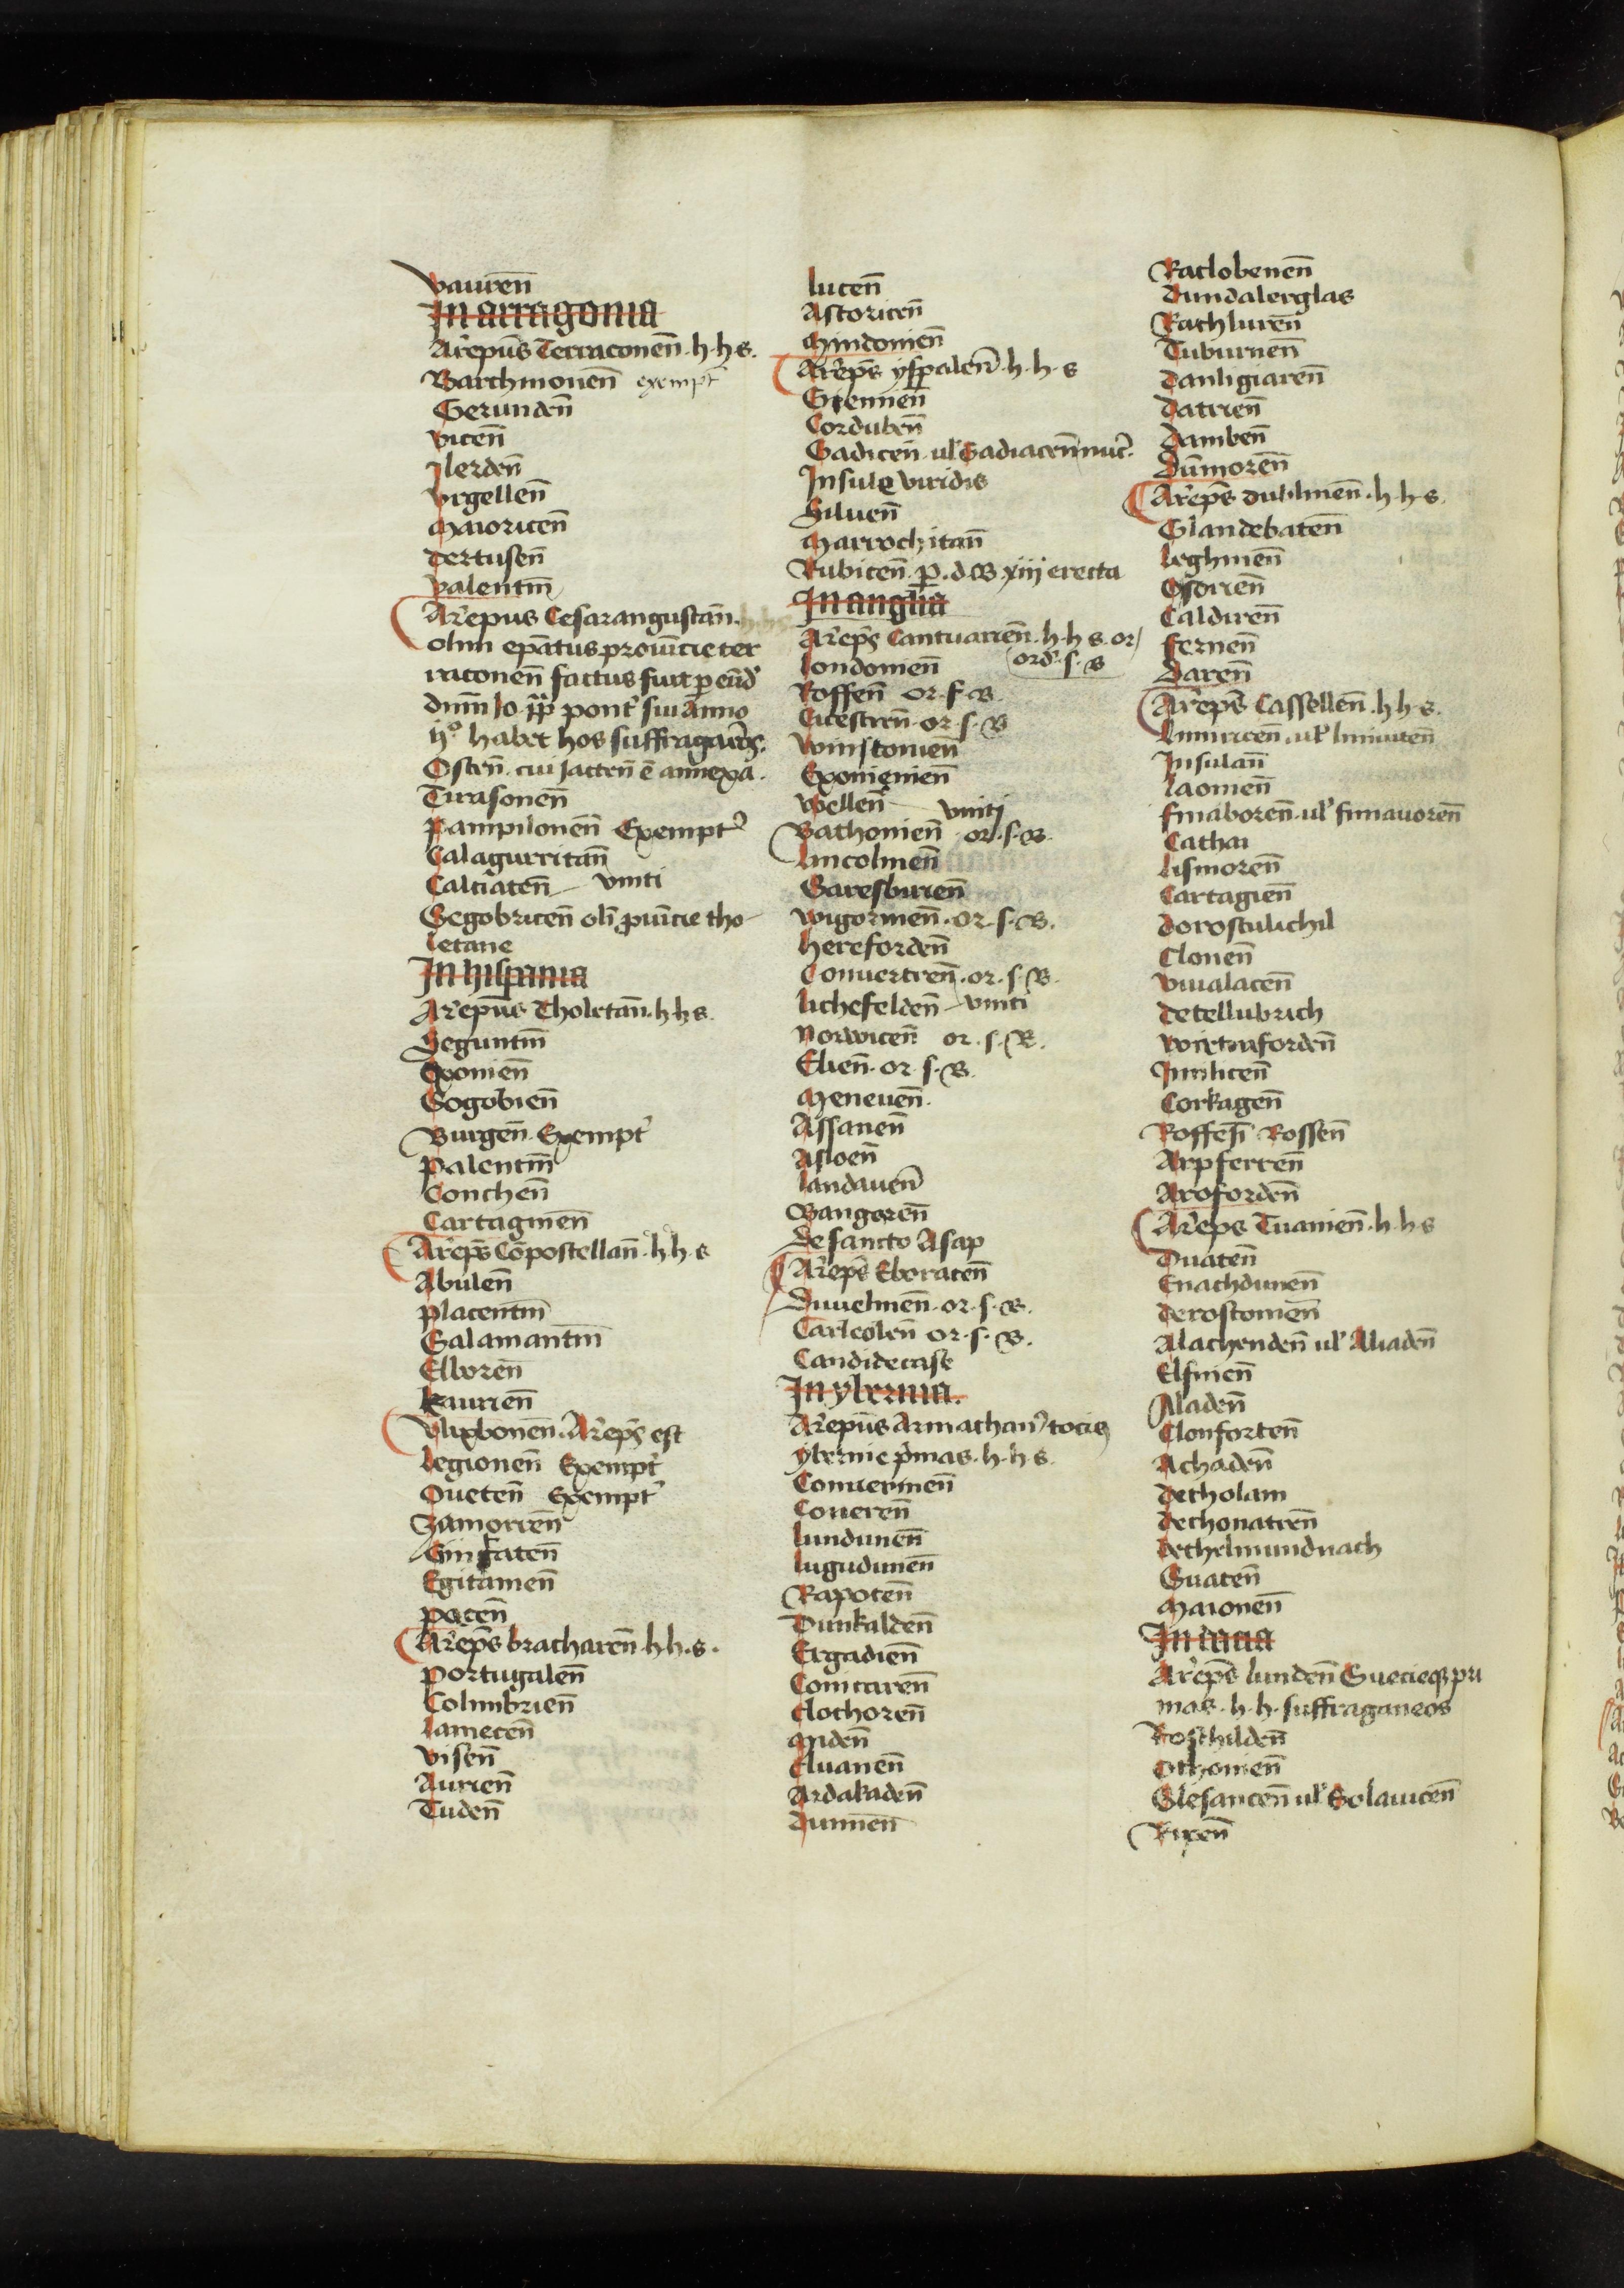 vauren̄
In arragonia
Ar̄epūs Terraconen̄ .h.h.s.
Barchinonen̄ exempt᷎
Gerunden̄
vicen̄
Jlerden̄
vrgellen̄
Maioricen̄
dertusen̄
valentin̄
Ar̄epus Cesaraugustan̄.
olim ep̄atus prouīcie ter
raconen̄ factus fuit p eūd᷎
dnm̄ Jo. pp̄ pont᷎ sui Anno
ijº habet hos suffraganeos.
Oscen̄. cui Jaccen̄ ē annexa.
Tirasonen̄
pampilonen̄ Exempt᷎
Calagurritan̄
Calciaten̄ — vniti
Segobricen̄ oli᷎ puīcie tho-
letane
In hispania
Ar̄epūs Tholetan̄ .h h s.
Seguntin̄
Oxomen̄
Sogobien̄
Burgen̄ Exempt᷎
palentin̄
Conchen̄
Cartaginen̄
Ar̄epūs Cōpostellan̄ .h h s
Abulen̄
placentin̄
Salamantin̄
Elboren̄
kaurien̄
vlixbonen̄. Ar̄eps̄ est
legionen̄ Exempt᷎
Oueten̄ Exempt᷎
Zamorren̄
Egitanien̄
pacen̄
Ar̄eps̄ bracharen̄ h h. s.
portugalen̄
Colimbrien̄
lamecen̄
visen̄
Aurien̄
Tuden̄
lucen̄
Astoricen̄
Mindonien̄
Ar̄eps̄ yspalen̄ .h.h.s
Giennen̄
Corduben̄
Gadicen̄ . ul᷎ Gadiacen̄ nūc᷎.
Insule viridis
Siluen̄
Marrochitan̄
Rubicen̄ . P. d. B. xiij erecta
In anglia
Ar̄eps̄ Cantuarien̄ .h.h s. or
ord᷎. s. B
londonien̄
Roffen̄ or. s. B.
Cicestren̄ or. s. B
Winstonien̄
Exonienien̄
Wellen̄
vniti
Bathonien̄ or. s. B.
lincolnien̄
Saresburien̄
wigornien̄ . or. s. B.
hereforden̄
Conuertren̄ . or. s. B.
lichefelden̄ — vniti
Norwicen̄ or. s. B.
Elien̄ . or s. B.
Meneuen̄.
Assanen̄
Asloen̄
landauen̄
Bangoren̄
de sancto Asap
Ar̄eps̄ Eboracen̄
Duuelmen̄ . or. s. B.
Carleolen̄ or. s. B.
Candidecase
In ybernia.
Ar̄epūs Armachan̄ tocis
ybernie p᷎mas .h.h s.
Conuerinen̄
Coneren̄
lundunen̄
lugudunen̄
Rapoten̄
Dunkalden̄
Ergadien̄
Connaren̄
Clochoren̄
Miden̄
Eluanen̄
Ardakaden̄
dunnen̄
Raclobenen̄
dundalerglas
Rathluren̄
Tuburnen̄
danligiaren̄
datrien̄
damben̄
Dūmoren̄
Ar̄eps̄ dublinien̄ .h.h.s.
Glandebaten̄
leghnien̄
Osorien̄
Caldiren̄
fernen̄
Daren̄
Ar̄eps̄ Cassellen̄ .h.h.s.
Insulan̄
laonien̄
finaboren̄ . ul᷎ finnauoren̄
Cathai
lismoren̄
Cartagien̄
dorostulichil
Clonen̄
viualacen̄
detellubrich
Corkagen̄
Roffen̄ Rossen̄
Arpferten̄
Aroforden̄
Ar̄eps Tuanien̄ .h.h s
Duaten̄
Enachdunen̄
derostonien̄
Alachenden̄ ul᷎ Aliaden̄
Elfinen̄
Aladen̄
Clonforten̄
Achaden̄
detholam
dechonatren̄
dethelmundnach
Guaten̄
Maionen̄
In dacia
Ar̄eps̄ lunden̄ Suecieqȝ pri
mas .h.h. suffraganeos
Roschilden̄
Othonien̄
Glesancen̄ ul᷎ Solauicen̄
Ripen̄